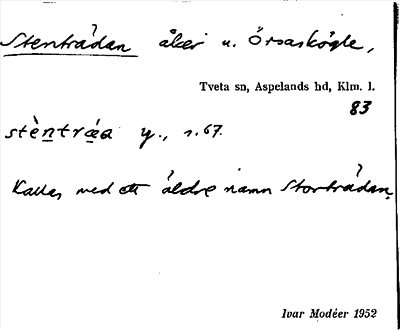 Stenträdan åker u. Örsaskögle,
Tveta sn, Aspelands hd, Klm. l.
83
stèntræ̀a y., s. 67.
Kallas med ett äldre namn Storträdan.
Ivar Modéer 1952